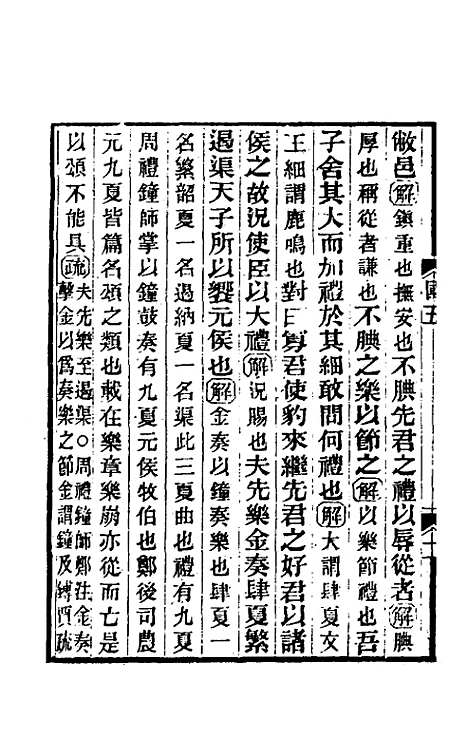 敝邑解鎮重也撫安也不腆先君之禮以辱從者解腆
厚也稱從者謙也不腆之樂以節之解以樂節禮也吾
子舍其大而加禮於其細敢問何禮也解大謂肆夏文
王細謂鹿鳴也對曰寡君使豹來繼先君之好君以諸
侯之故況使臣以大禮解況賜也夫先樂金奏肆夏繁
遏渠天子所以饗元侯也解金奏以鐘奏樂也肆夏一
名繁韶夏一名遏納夏一名渠此三夏曲也禮有九夏
周禮鐘師掌以鐘鼓奏有九夏元侯牧伯也鄭後司農
元九夏皆篇名頌之類也載在樂章樂崩亦從而亡是
以頌不能具疏夫先樂至遏渠〇周禮鐘師鄭注金奏
擊金以為奏樂之節金謂鐘及鎛賈疏
國五